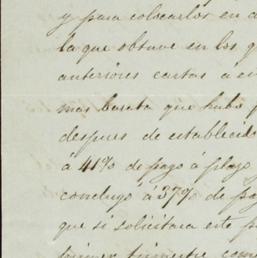 y para colocarlos en
la que obtuve en los
anteriores cartas á
mas barata que hubo
despues de establecid
á 41% de pago á plazo
concluyó á 37% de pa
que si solicitara este p
primer trimestre com